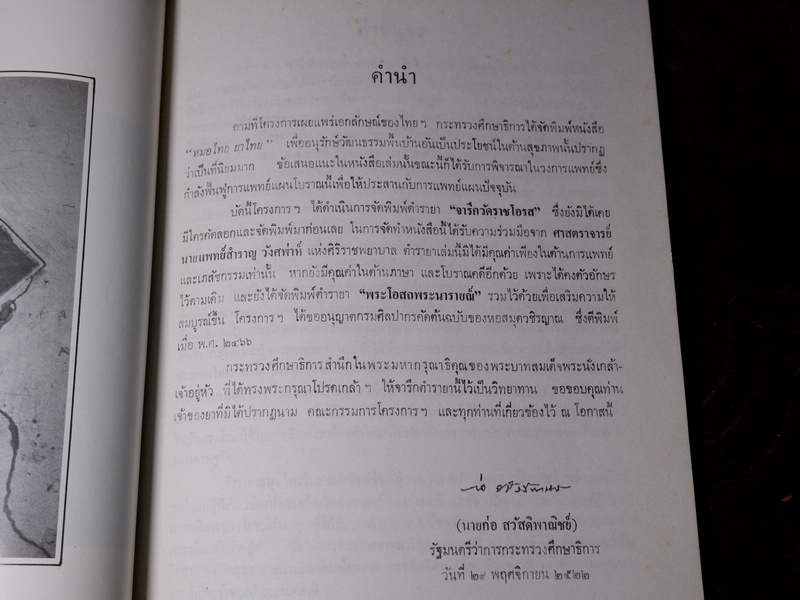 คำนำ
ตามที่โครงการเผยแพร่เอกลักษณ์ของไทยฯ กระทรวงศึกษาธิการได้จัดพิมพ์หนังสือ
"หมอไทย ยาไทย" เพื่ออนุรักษ์วัฒนธรรมพื้นบ้านอันเป็นประโยชน์ในด้านสุขภาพนั้นปรากฏ
ว่าเป็นที่นิยมมาก ข้อเสนอแนะในหนังสือเล่มนั้นขณะนี้ก็ได้รับการพิจารณาในวงการแพทย์ซึ่ง
กำลังฟื้นฟูการแพทย์แผนโบราณนี้เพื่อให้ประสานกับการแพทย์แผนปัจจุบัน
บัดนี้โครงการฯ ได้ดำเนินการจัดพิมพ์ตำรายา "จารึกวัดราชโอรส" ซึ่งยังมิได้เคย
มีใครคัดลอกและจัดพิมพ์มาก่อนเลย ในการจัดทำหนังสือนี้ได้รับความร่วมมือจาก ศาสตราจารย์
นายแพทย์สำราญ วังศพ่าห์ แห่งศิริราชพยาบาล ตำรายาเล่มนี้มิได้มีคุณค่าเพียงในด้านการแพทย์
และเภสัชกรรมเท่านั้น หากยังมีคุณค่าในด้านภาษา และโบราณคดีอีกด้วย เพราะได้คงตัวอักษร
ไว้ตามเดิม และยังได้จัดพิมพ์ตำรายา "พระโอสถพระนารายณ์" รวมไว้ด้วยเพื่อเสริมความให้
สมบูรณ์ขึ้น โครงการฯ ได้ขออนุญาตกรมศิลปากรคัดต้นฉบับของหอสมุดวชิรญาณ ซึ่งตีพิมพ์
เมื่อ พ.ศ. ๒๔๖๖
กระทรวงศึกษาธิการสำนึกในพระมหากรุณาธิคุณของพระบาทสมเด็จพระนั่งเกล้า-
เจ้าอยู่หัว ที่ได้ทรงพระกรุณาโปรดเกล้าฯ ให้จารึกตำรายานี้ไว้เป็นวิทยาทาน ขอขอบคุณท่าน
เจ้าของยาที่มิได้ปรากฏนาม คณะกรรมการโครงการฯ และทุกท่านที่เกี่ยวข้องไว้ ณ โอกาสนี้
(นายก่อ สวัสดิพาณิชย์)
รัฐมนตรีว่าการกระทรวงศึกษาธิการ
วันที่ ๒๙ พฤศจิกายน ๒๕๒๒